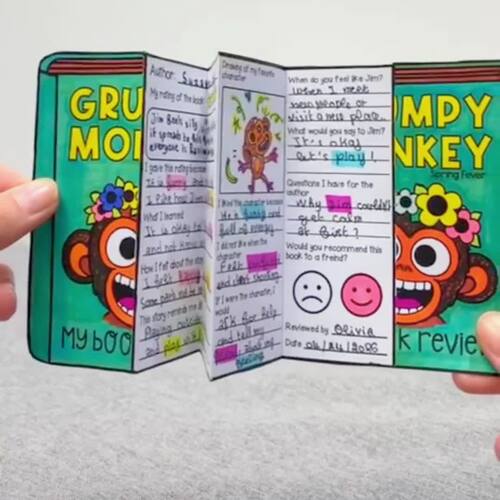 GRU
MO
My boo
Author: Suza
My rating of the book
Jim feels silly
everyone is
I gave this rating because
It is funny
I like how
What I learned
It is okay to
and not know
How I felt about the story
I felt
Some parts
The story reminds me of
Playing outside
and play with
Drawing of my favorite
character
I liked the character because
He's funny and
full of energy.
I did not like when the
character
Felt
and about shouting
If I were the character, I
would
ask for help
and tell my
about my
feeling
When do you feel like Jim?
When I meet
new people or
visit a new place.
What would you say to Jim?
It's okay
let's play!
Questions I have for the
author
Why Jim couldn't
get calm
at first?
Would you recommend this
book to a freind?
Reviewed by Olivia
Date 04/24/2026
UMPY
NKEY
Spring Fever
k review